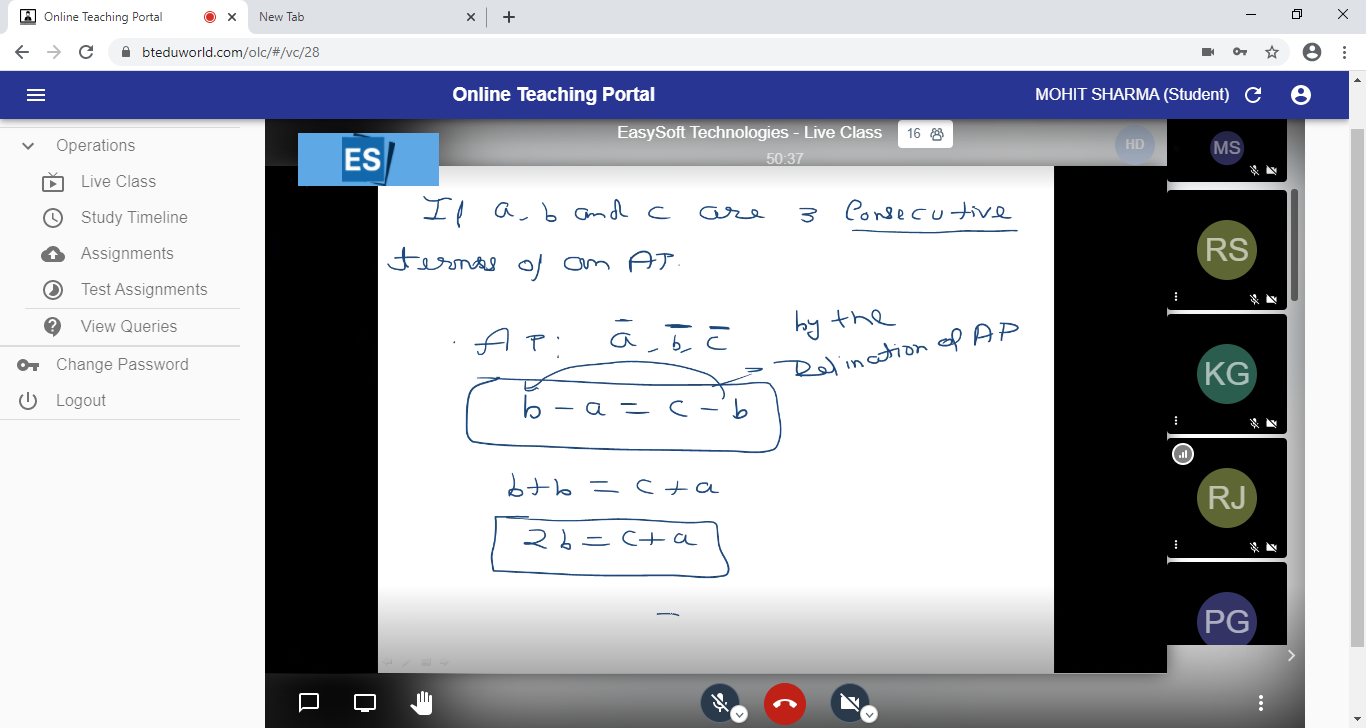 Online Teaching Portal
New Tab
bteduworld.com/olc/#/vc/28
Online Teaching Portal
MOHIT SHARMA (Student)
Operations
Live Class
Study Timeline
Assignments
Test Assignments
View Queries
Change Password
Logout
ES
EasySoft Technologies - Live Class
16
50:37
HD
If a, b and c are 3 Consecutive
terms of an AP.
AP: a, b, c
by the
Defination of AP
b - a = c - b
b+b = c+a
2b = c+a
MS
RS
KG
RJ
PG